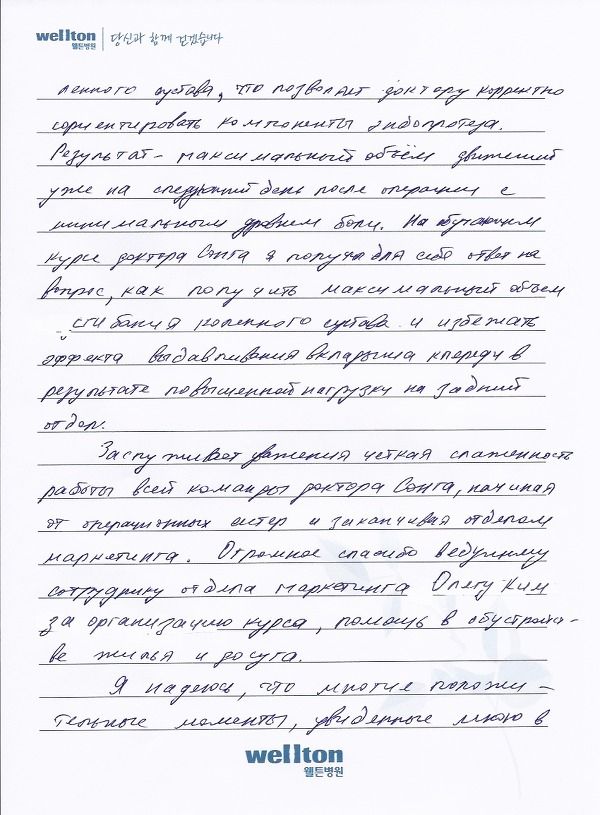 wellton 당신과 함께 걷겠습니다
웰튼병원
ленного сустава, что позволяет доктору корректно
сориентировать компоненты эндопротеза.
Результат - максимальный объём движений
уже на следующий день после операции с
минимальным уровнем боли. На обучающем
курсе доктора Сонга я получил для себя ответ на
вопрос, как получить максимальный объем
сгибания коленного сустава и избежать
эффекта выдавливания вкладыша кпереди в
результате повышенной нагрузки на задний
отдел.
Заслуживает уважения четкая слаженность
работы всей команды доктора Сонга, начиная
от операционных сестер и заканчивая отделом
маркетинга. Огромное спасибо ведущему
сотруднику отдела маркетинга Олегу Ким
за организацию курса, помощь в обустройст-
ве жилья и досуга.
Я надеюсь, что многие положи-
тельные моменты, увиденные мною в
wellton
웰튼병원